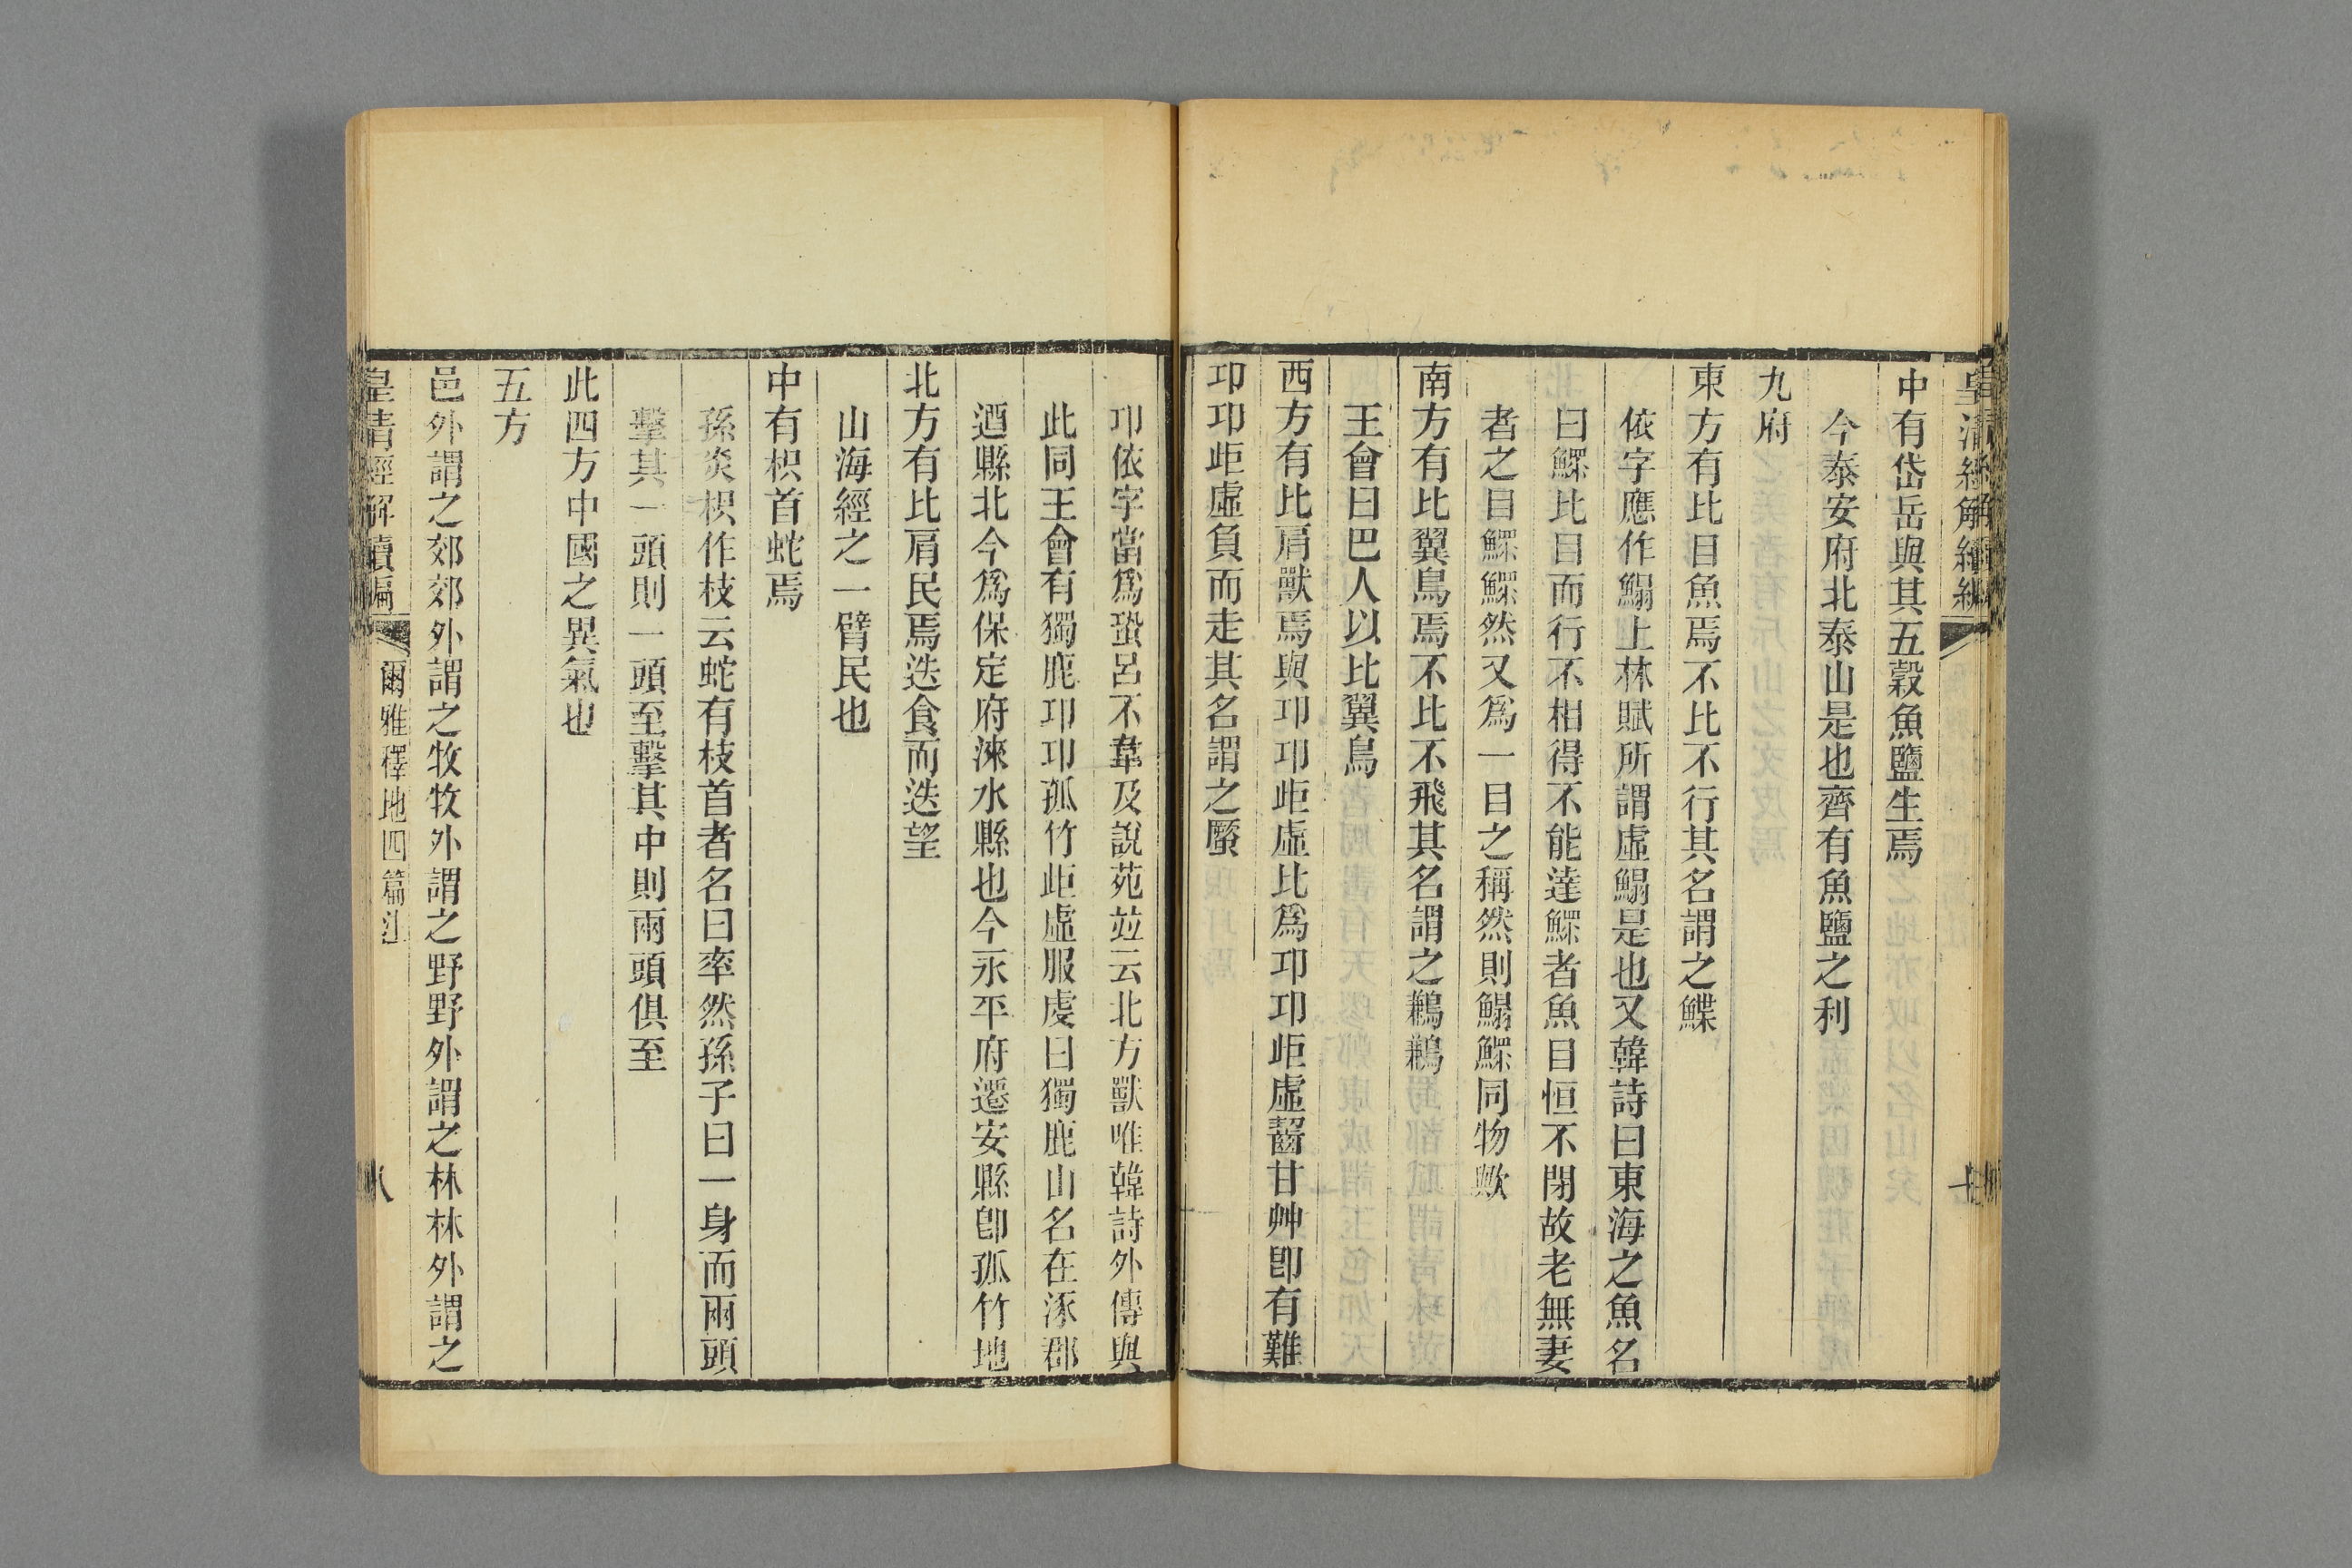 皇清經解續編
七
中有岱岳與其五穀魚鹽生焉
今泰安府北泰山是也齊有魚鹽之利
九府
東方有比目魚焉不比不行其名謂之鰈
依字應作鰨上林賦所謂虛鰨是也又韓詩曰東海之魚名
曰鰥比目而行不相得不能達鰥者魚目恒不閉故老無妻
者之目鰥鰥然又爲一目之稱然則鰨鰥同物歟
南方有比翼鳥焉不比不飛其名謂之鶼鶼
王會曰巴人以比翼鳥
西方有比肩獸焉與卭卭岠虛比爲卭卭岠虛齧甘艸卽有難
卭卭岠虛負而走其名謂之蟨
卭依字當爲蛩呂不韋及說苑竝云北方獸唯韓詩外傳與
此同王會有獨鹿卭卭孤竹岠虛服虔曰獨鹿山名在涿郡
遒縣北今爲保定府淶水縣也今永平府遷安縣卽孤竹地
北方有比肩民焉迭食而迭望
山海經之一臂民也
中有枳首蛇焉
孫炎枳作枝云蛇有枝首者名曰率然孫子曰一身而兩頭
擊其一頭則一頭至擊其中則兩頭俱至
此四方中國之異氣也
五方
邑外謂之郊郊外謂之牧牧外謂之野野外謂之林林外謂之
皇清經解續編
爾雅釋地四篇注
八